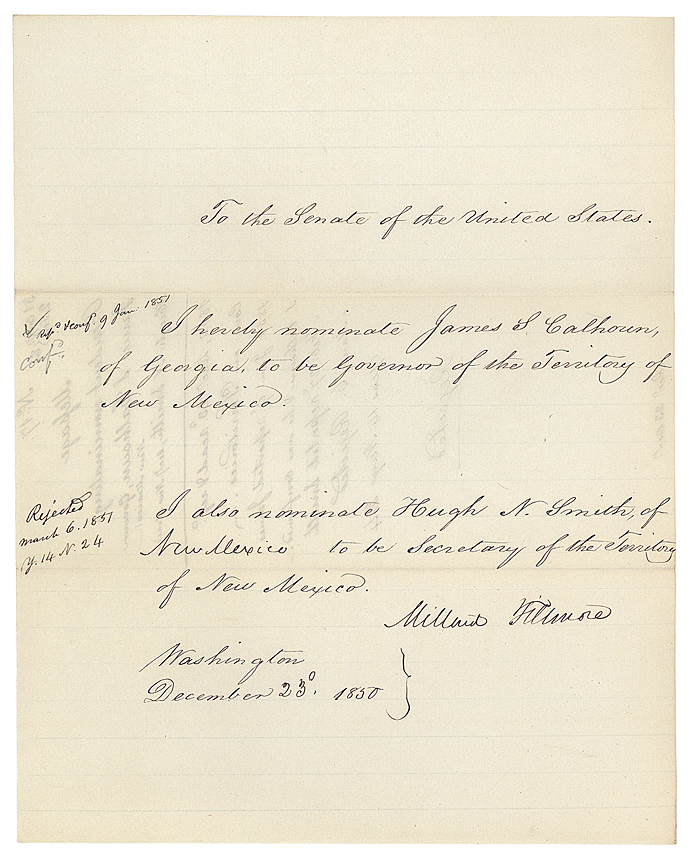 To the Senate of the United States.
Rep.d & conf. 9 Jan. 1851
Conf.
I hereby nominate James S. Calhoun,
of Georgia, to be Governor of the Territory of
New Mexico.
Rejected
march 6. 1851
Y. 14 N. 24
I also nominate Hugh N. Smith, of
New Mexico to be Secretary of the Territory
of New Mexico.
Millard Fillmore
Washington
December 23d. 1850